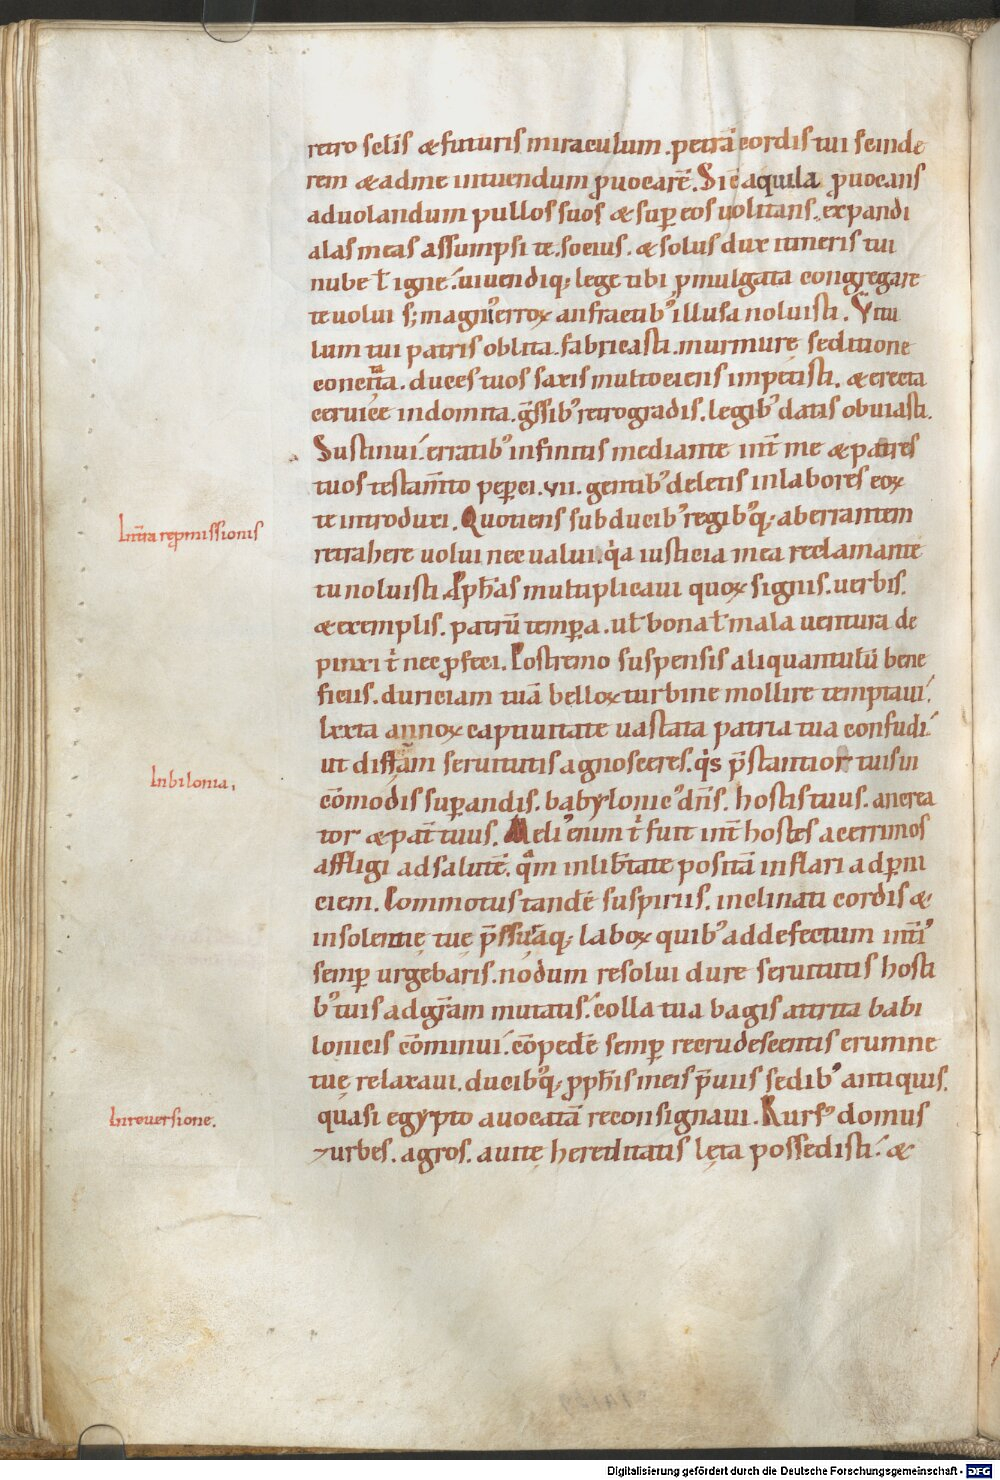 retro sclis & futuris miraculum. petrā cordis tui scinde
rem & ad me intuendum puocarē. Sic aquila puocans
ad uolandum pullos suos & sup eos uolitans. expandi
alas meas assumpsi te. socius. & solus dux itineris tui
nube ł igne. uiuendiq; lege tibi pmulgata congregare
te uolui s; magn' erroꝝ anfractib' illusa noluisti. Vitu
lum tui patris oblita. fabricasti. murmure seditione
duces tuos saxis multociens impetisti. & erecta
ceruice indomita. gssib' retrogradis. legib' datis obuiasti.
Sustinui. erratib' infinitis mediante int me & patres
tuos testamto pepei. vii. gentib' deletis in labores eoꝝ
te introduxi. Quotiens sub ducib' regib'q; aberrantem
retrahere uolui nec ualui. qa iusticia mea reclamante
tu noluisti. Pphas multiplicaui quoꝝ signis. uerbis.
& exemplis. patrū tempora. ul bona ł mala uentura de
pinxi t nec pfeci. Postremo suspensis aliquantulū bene
ficiis. duriciam tuā belloꝝ turbine mollire temptaui.
lxxta annoꝝ captiuitate uastata patria tua confudi.
ut diffam seruitutis agnosceres. qis pstantior tuis ui
cōmodis supandis. babylonic' dns. hostis tuus. an crea
tor & pat tuus. Meli' enim t fuit int hostes acerrimos
affligi ad salutē. qm in libtate positā inflari ad pni
ciem. Commotus tandē suspiriis. inclinati cordis &
insolentię tuę pssuraq; laboꝝ quib' ad defectum
semp urgebaris. nodum resolui dure seruitutis hosti
b' tuis ad gram mutatis. colla tua bagis attrita babi
lonicis cōminui. cōpedē semp recrudescentis erumne
tuę relaxaui. ducib'q; pphis meis pviis sedib' antiquis.
quasi egypto auocatā reconsignaui. Rurs' domus
urbes. agros. auitę hereditatis lęta possedisti. &
Inbilonia.
In reuersione.
Digitalisierung gefördert durch die Deutsche Forschungsgemeinschaft - DFG